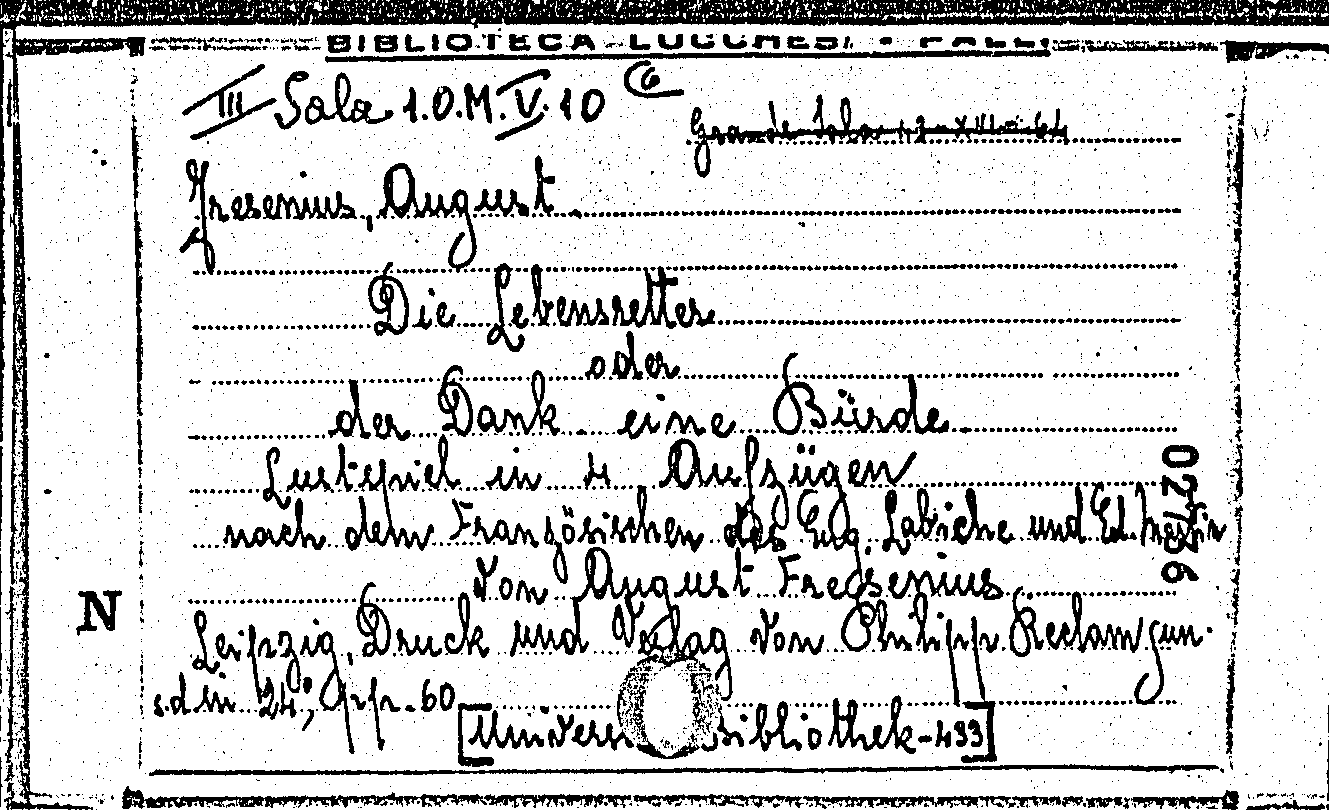 BIBLIOTECA LUCCHESI - PALLI
III Sala 1.O.M.V.10 6
Grande Sala 12-XVI-64
Fresenius, August
Die Lebensretter
oder
der Dank eine Bürde
Lustspiel in 4 Aufzügen
nach dem Französischen des Eug. Labiche und Ed. Martin
von August Fresenius
Leipzig, Druck und Verlag von Philipp Reclam jun.
s.d in 24; pp. 60
[Univers Bibliothek-433]
N
02736